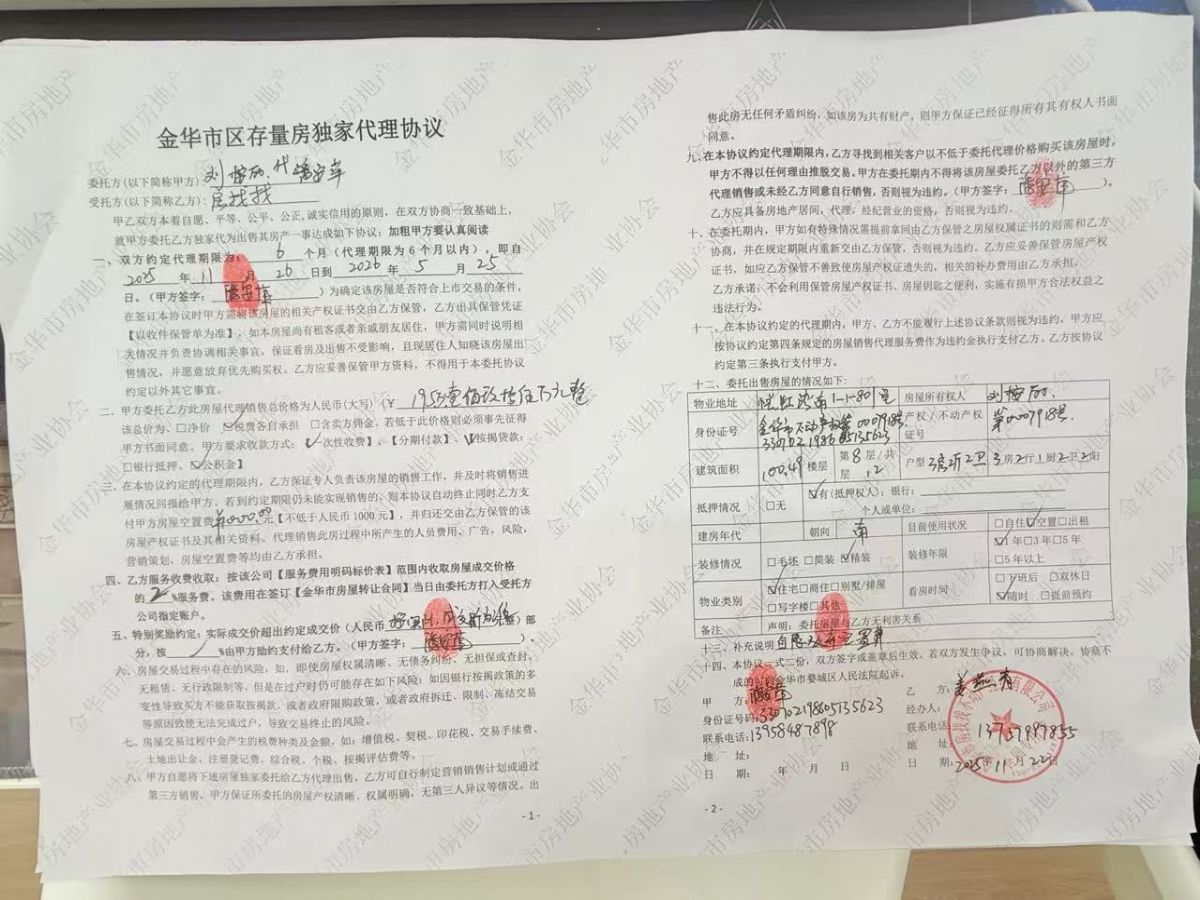 金华市区存量房独家代理协议
委托方(以下简称甲方) 刘 代
受托方(以下简称乙方)：房找找
甲乙双方本着自愿、平等、公平、公正,诚实信用的原则，在双方协商一致基础上，
就甲方委托乙方独家代为出售其房产一事达成如下协议：加粗甲方要认真阅读
一、双方约定代理期限为： 6 个月（代理期限为6个月以内），即自
2025 年 11 月 26 日到 2026 年 5 月 25
日。（甲方签字： ）为确定该房屋是否符合上市交易的条件，
在签订本协议时甲方需将该房屋的相关产权证书交由乙方保管，乙方出具保管凭证
【以收件保管单为准】，如本房屋尚有租客或者亲戚朋友居住，甲方需同时说明相
关情况并负责协调相关事宜，保证看房及出售不受影响，且现居住人知晓该房屋出
售情况，并愿意放弃优先购买权。乙方应妥善保管甲方资料，不得用于本委托协议
约定以外其它事宜。
二、甲方委托乙方此房屋代理销售总价格为人民币(大写)（￥ 195万壹佰玖拾伍万元整
该总价为：□净价 ☑税费各自承担 □含卖方佣金。若低于此价格则必须事先征得
甲方书面同意。甲方要求收款方式：【☑一次性收费】、【分期付款】、☑按揭贷款：
□银行抵押、☑公积金】
三、在本协议约定的代理期限内，乙方保证专人负责该房屋的销售工作，并及时将销售进
展情况回报给甲方，若到约定期限仍未能实现销售的，则本协议自动终止同时乙方支
付甲方房屋空置费 元【不低于人民币1000元】，并归还交由乙方保管的该
房屋产权证书及其相关资料。代理销售此房过程中所产生的人员费用、广告，风险，
营销策划，房屋空置费等均由乙方承担。
四、乙方服务收费收取：按该公司【服务费用明码标价表】范围内收取房屋成交价格
的 2 %服务费。该费用在签订【金华市房屋转让合同】当日由委托方打入受托方
公司指定账户。
五、特别奖励约定：实际成交价超出约定成交价（人民币 ）部
分，按 / %由甲方励约支付给乙方。（甲方签字： ）。
六、房屋交易过程中存在的风险，如，即使房屋权属清晰、无债务纠纷、无担保或查封、
无租赁、无行政限制等，但是在过户时仍可能存在如下风险：如因银行按揭政策的多
变性导致买方不能获取按揭款，或者政府限购政策，或者政府拆迁、限制、冻结交易
等原因致使无法完成过户，导致交易终止的风险。
七、房屋交易过程中会产生的税费种类及金额，如：增值税、契税、印花税、交易手续费、
土地出让金、注册登记费、综合税、个税、按揭评估费等。
八、甲方自愿将下述房屋独家委托给乙方代理出售。乙方可自行制定营销销售计划或通过
第三方销售。甲方保证所委托的房屋产权清晰、权属明确，无第三人异议等情况，出
- 1 -
售此房无任何矛盾纠纷，如该房为共有财产，则甲方保证已经征得所有其有权人书面
同意。
九、在本协议约定代理期限内，乙方寻找到相关客户以不低于委托代理价格购买该房屋时，
甲方不得以任何理由推脱交易。甲方在委托期内不得将该房屋委托乙方以外的第三方
代理销售或未经乙方同意自行销售，否则视为违约。（甲方签字： ）。
乙方应具备房地产居间，代理，经纪营业的资格，否则视为违约。
十、在委托期内，甲方如有特殊情况需提前拿回由乙方保管之房屋权属证书的则需和乙方
协商，并在规定期限内重新交由乙方保管，否则视为违约。乙方应妥善保管房屋产权
证书，如应乙方保管不善致使房屋产权证遗失的，相关的补办费用由乙方承担。
乙方承诺：不会利用保管房屋产权证书、房屋钥匙之便利，实施有损甲方合法权益之
违法行为。
十一、在本协议约定的代理期内，甲方、乙方不能履行上述协议条款则视为违约，甲方应
按协议约定第四条规定的房屋销售代理服务费作为违约金执行支付乙方。乙方按协议
约定第三条执行支付甲方。
十二、委托出售房屋的情况如下：
物业地址 1-1-801号 房屋所有权人 刘
身份证号 330702198605135623 产权/不动产权证号 第0007918号
建筑面积 100.49 楼层 第8层/共12层 户型 3房2厅1厨2卫2阳
抵押情况 □无 ☑有(抵押权人)：银行：
个人或单位：
建房年代 朝向 南 目前使用状况 □自住☑空置□出租
装修情况 □毛坯 □简装 ☑精装 装修年限 ☑1年□3年□5年
□5年以上
物业类别 ☑住宅□商住□别墅/排屋 看房时间 □下班后 □双休日
□写字楼□其他 ☑随时 □提前预约
备注 声明：委托房屋与乙方无利害关系
十三、补充说明
十四、本协议一式二份，双方签字或盖章后生效、若双方发生争议，可协商解决，协商不
成的，向金华市婺城区人民法院起诉。
甲 方：
身份证号码：330702198605135623
联系电话：13958487898
地 址：
日 期： 年 月 日
乙 方：
经办人：
联系电话：13757987855
地 址：
日 期：2025.11月22日
- 2 -